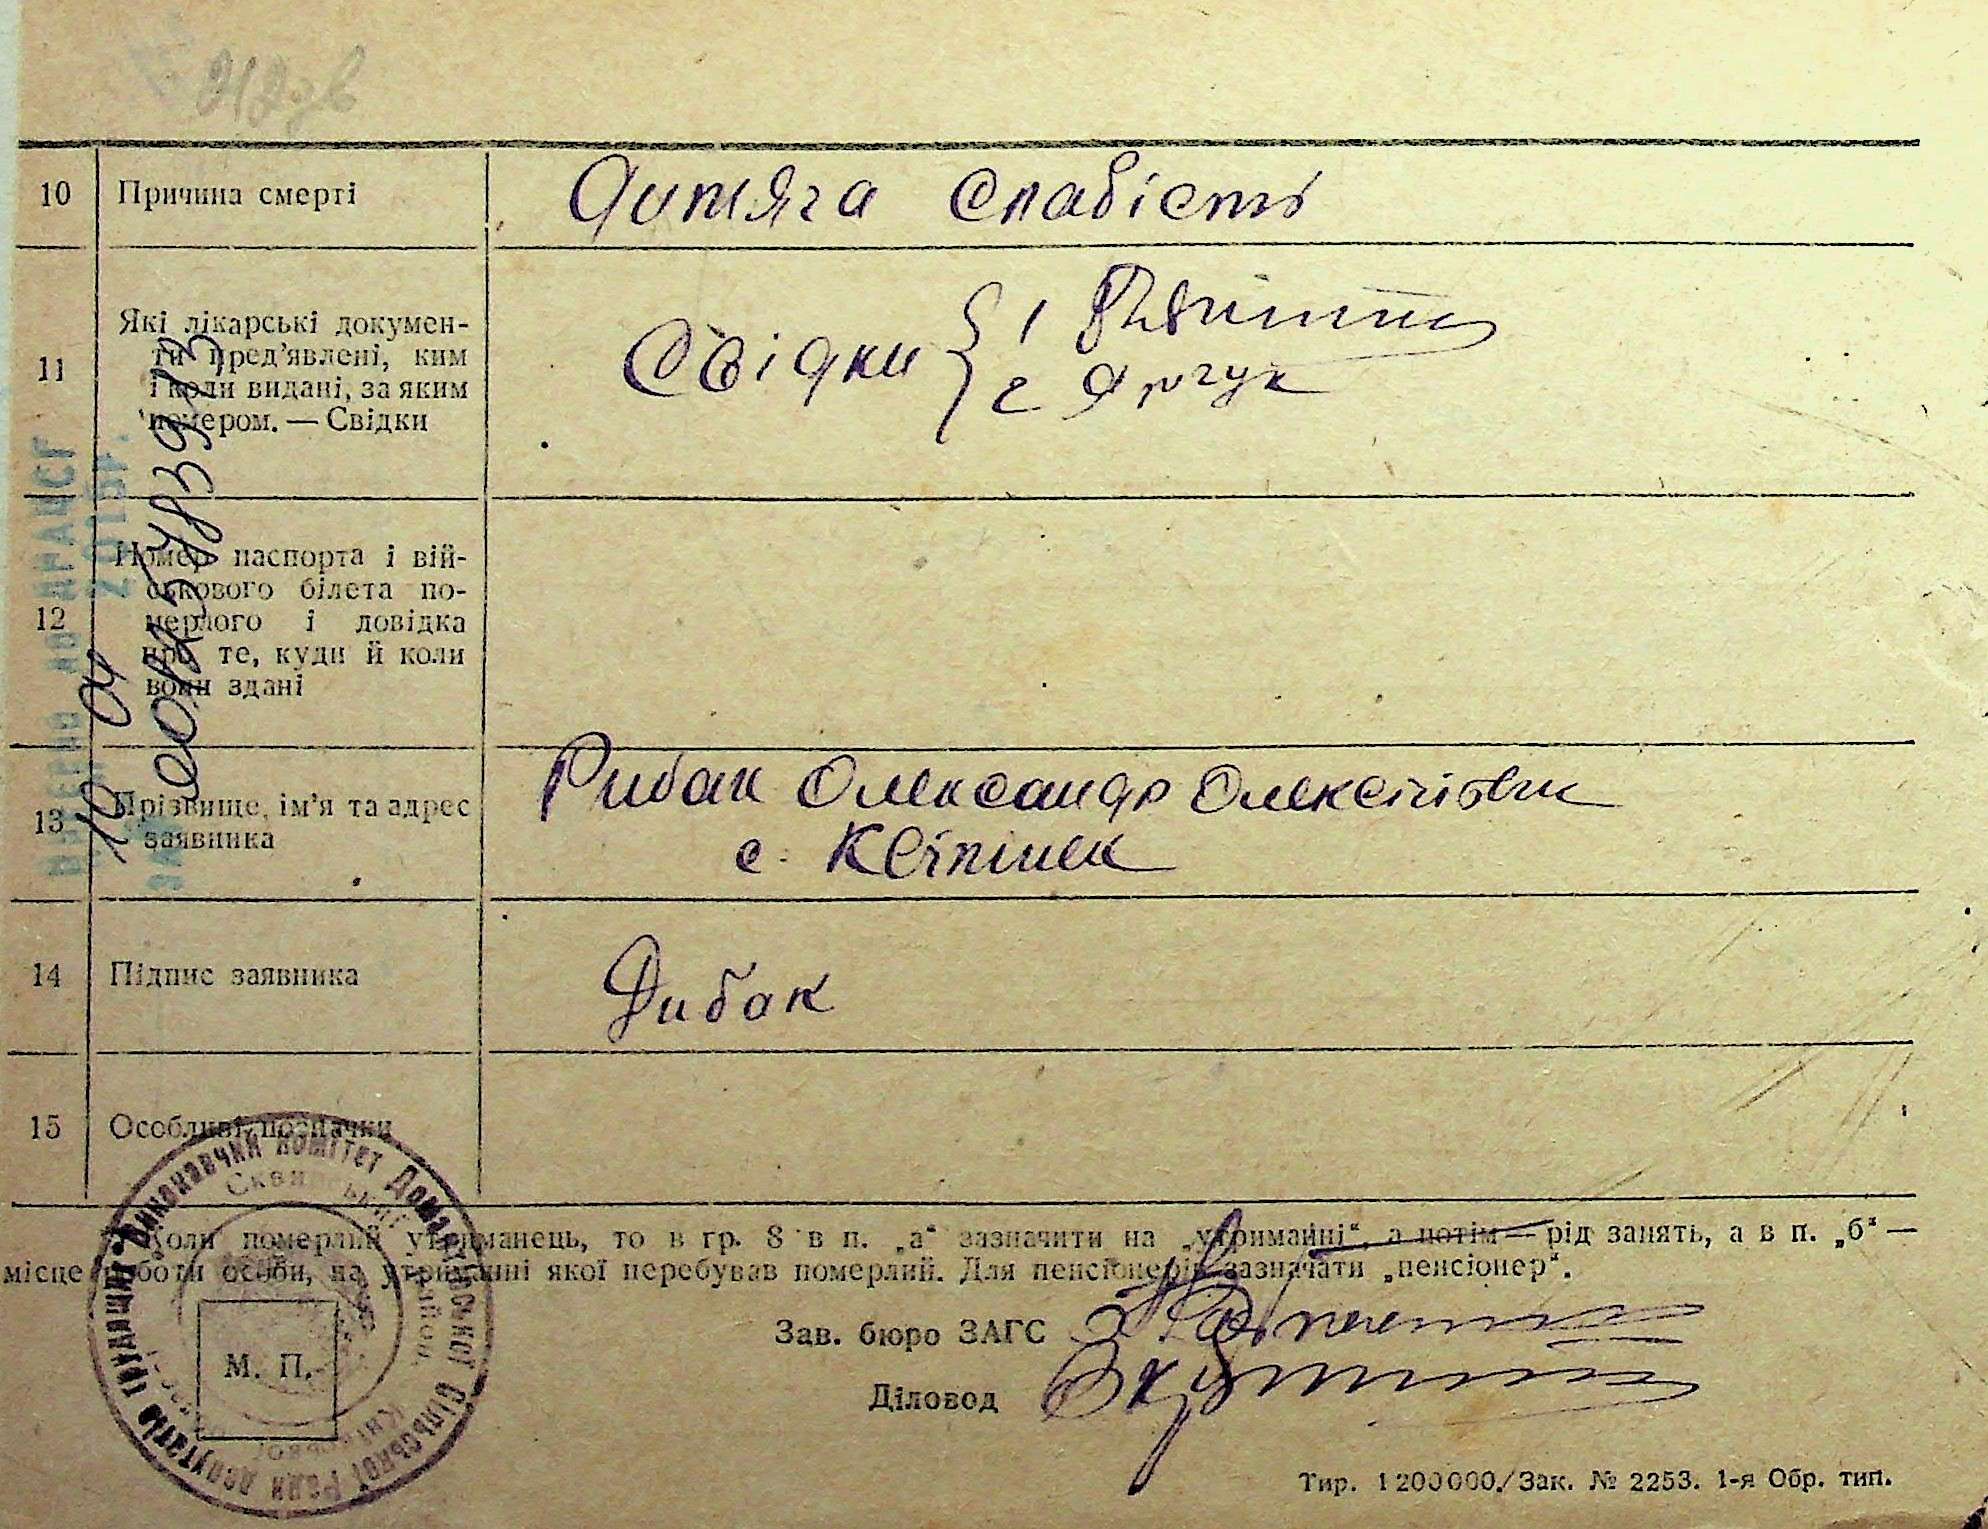 10 Причина смерті Дитяга слабість
11 Які лікарські докумен-
ти пред'явлені, ким
і коли видані, за яким
номером. — Свідки
Свідки { 1
2 Ярчук
12 Номер паспорта і вій-
ськового білета по-
мерлого і довідка
про те, куди й коли
вони здані
13 Прізвище, ім'я та адрес
заявника
Рибак Олександр Олексійович
с.
14 Підпис заявника Рибак
15 Особливі позначки
Коли померлий утриманець, то в гр. 8 в п. „а“ зазначити на „утриманні“, а потім — рід занять, а в п. „б“ —
місце роботи особи, на утриманні якої перебував померлий. Для пенсіонерів зазначати „пенсіонер“.
Зав. бюро ЗАГС
Діловод
М. П.
Виконавчий комітет Домантівської Сільської Ради депутатів трудящих
Сквирський район, Київської
Тир. 1 200 000. Зак. № 2253. 1-я Обр. тип.